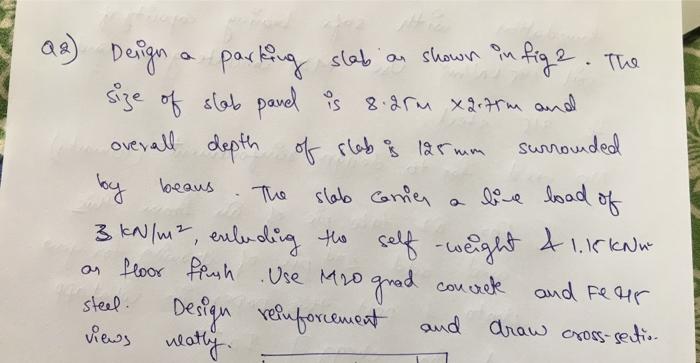 Q2) Design a parking slab as shown in fig 2. The
size of slab panel is 8.25m x 2.75m and
overall depth of slab is 125mm surrounded
by beams. The slab carries a live load of
3 kN/m², excluding the self-weight & 1.15 kN/m
as floor finish. Use M20 grad concrete and Fe 415
steel. Design reinforcement and draw cross-sectio-
views neatly.